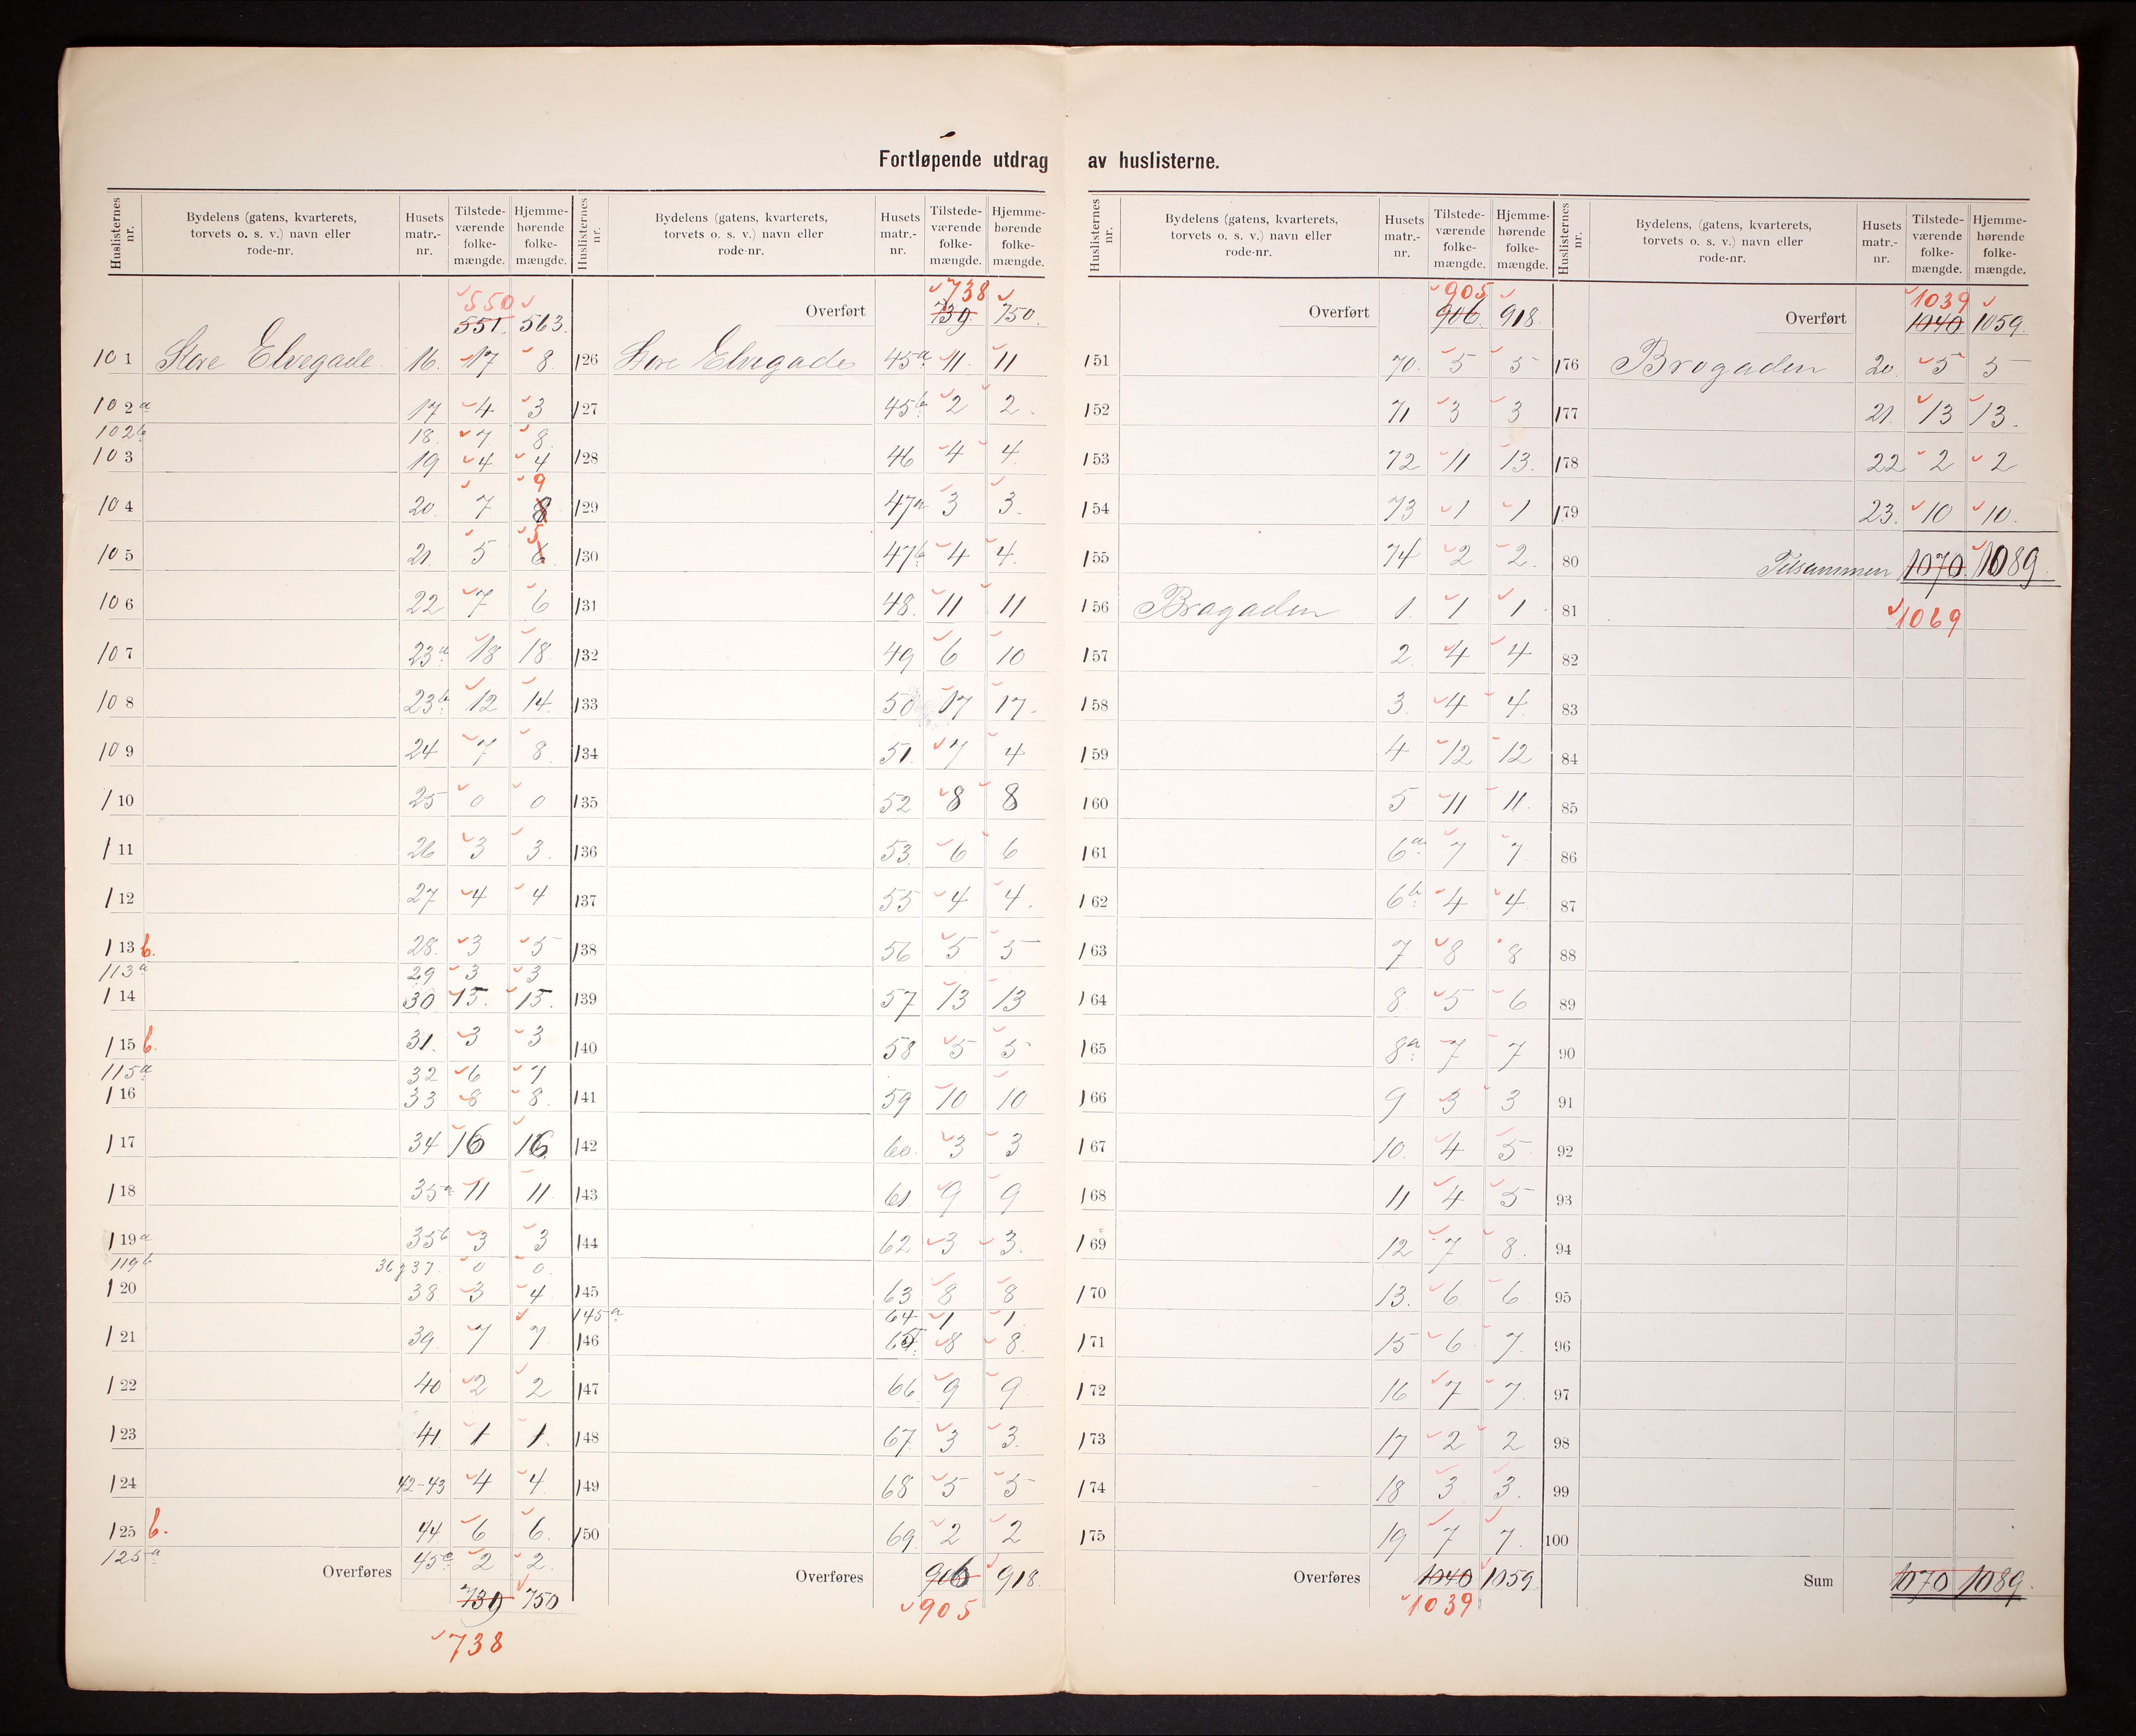 Fortløpende utdrag av huslisterne.
Huslisternes nr. | Bydelens (gatens, kvarterets, torvets o. s. v.) navn eller rode-nr. | Husets matr.-nr. | Tilstede-værende folke-mængde. | Hjemme-hørende folke-mængde.
550
551. 563.
101 Store Elvegade 16. 17 8.
102a 17 4 3
102b 18. 7 8.
103 19 4 4
9
104 20. 7 8
5
105 21. 5 6.
106 22 7 6
107 23a 18 18.
108 23b 12 14.
109 24 7 8
110 25 0 0
111 26 3 3.
112 27 4 4
113 b. 28. 3 5
113a 29 3 3
114 30 15. 15.
115 b. 31. 3 3
115a 32 6 7
116 33 8 8.
117 34 16 16
118 35a 11 11.
119a 35b 3 3
119b 36 g 37 0 0.
120 38 3 4
121 39. 7 7.
122 40 2 2
123 41 1 1.
124 42-43 4 4
125 b. 44 6 6.
125a 45 2 2.
Overføres
739 750
738
Huslisternes nr. | Bydelens, (gatens, kvarterets, torvets o. s. v.) navn eller rode-nr. | Husets matr.-nr. | Tilstede-værende folke-mængde. | Hjemme-hørende folke-mængde.
738
Overført 739 750.
126 Store Elvegade 45a 11. 11
127 45b 2 2.
128 46 4 4
129 47a 3 3.
130 47b 4 4.
131 48. 11 11
132 49 6 10
133 50 17 17.
134 51. 7 4
135 52 8 8
136 53. 6 6
137 55 4 4.
138 56 5 5
139 57 13 13
140 58 5 5
141 59 10 10
142 60. 3 3
143 61 9 9
144 62 3 3.
145 63 8 8
145a 64 1 1.
146 65 8 8.
147 66 9 9
148 67. 3 3.
149 68 5 5
150 69. 2 2
Overføres 906 918.
905
Huslisternes nr. | Bydelens (gatens, kvarterets, torvets o. s. v.) navn eller rode-nr. | Husets matr.-nr. | Tilstede-værende folke-mængde. | Hjemme-hørende folke-mængde.
905
Overført 906. 918.
151 70. 5 5
152 71 3 3
153 72 11 13.
154 73 1 1
155 74 2 2.
156 Brogaden 1. 1 1.
157 2. 4 4
158 3. 4 4.
159 4 12 12
160 5 11 11.
161 6a 7 7.
162 6b 4 4.
163 7 8 8
164 8. 5 6
165 8a 7 7
166 9 3 3
167 10. 4 5
168 11 4 5
169 12 7 8.
170 13. 6 6
171 15 6 7.
172 16 7 7.
173 17 2 2
174 18 3 3.
175 19 7 7.
Overføres 1040 1059.
1039
Huslisternes nr. | Bydelens, (gatens, kvarterets, torvets o. s. v.) navn eller rode-nr. | Husets matr.-nr. | Tilstede-værende folke-mængde. | Hjemme-hørende folke-mængde.
1039
Overført 1040 1059.
176 Brogaden 20. 5 5
177 21. 13 13.
178 22 2 2
179 23. 10 10.
80 Tilsammen 1070. 1089.
81 1069
82
83
84
85
86
87
88
89
90
91
92
93
94
95
96
97
98
99
100
Sum 1070 1089.